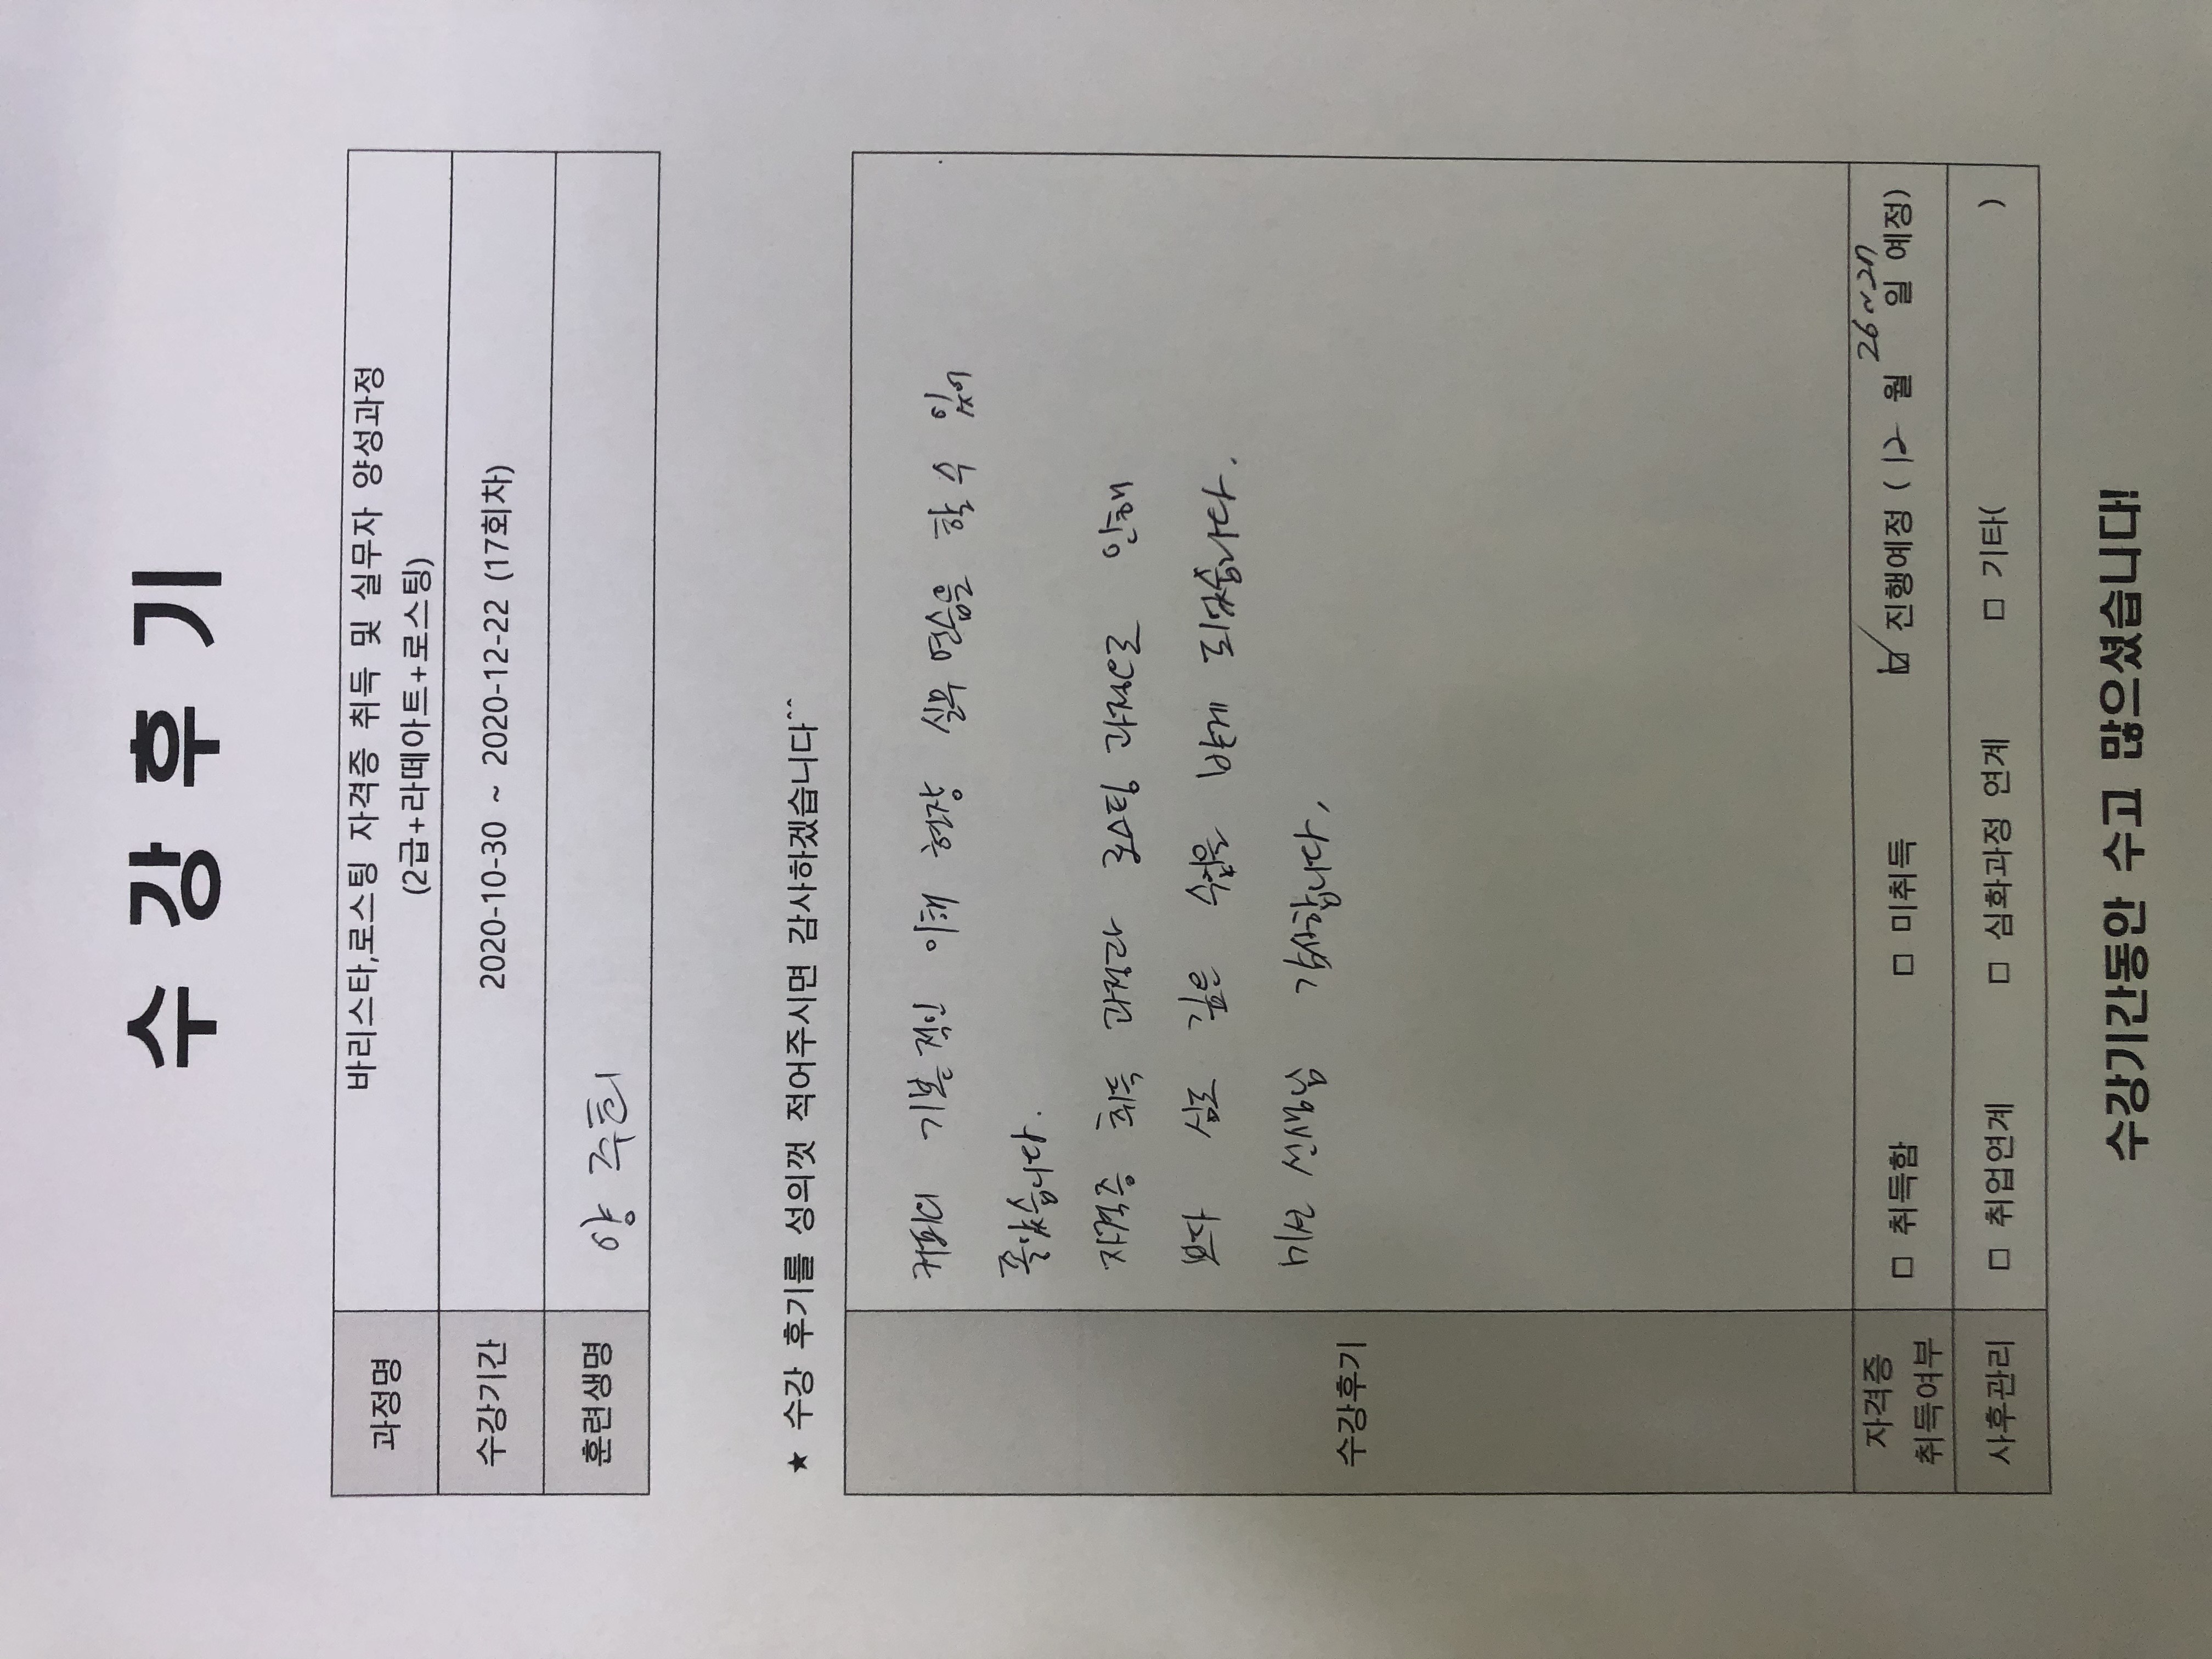 수 강 후 기
과정명 바리스타,로스팅 자격증 취득 및 실무자 양성과정
(2급+라떼아트+로스팅)
수강기간 2020-10-30 ~ 2020-12-22 (17회차)
훈련생명 양
★ 수강 후기를 성의껏 적어주시면 감사하겠습니다^^
수강후기
커피의 기본적인 이해 현장 실무 연습을 할 수 있어
좋았습니다.
자격증 취득 과정과 로스팅 과정으로 인해
보다 심도 깊은 수업을 받게 되었습니다.
미선 선생님 감사합니다,
자격증 취득여부 □ 취득함 □ 미취득 ☑ 진행예정 ( 12 월 26~27 일 예정)
사후관리 □ 취업연계 □ 심화과정 연계 □ 기타( )
수강기간동안 수고 많으셨습니다!